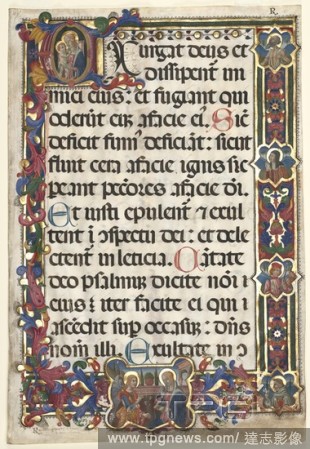 R
Exurgat deus et
dissipent ini
mici eius: et fugiant qui
oderūt eū afacie ei. Sic̄
deficit fum⁹ deficiāt: sicut
fluit cera afacie ignis sic
peant peccōres afacie dei.
Et iusti epulent⁊ exul
tent ī cspectu dei: et dele
ctent in leticia. Cātate
deo psalmū dicite nōi
eius: iter facite ei qui
ascēdit sup occasū: dn̄s
nom̄ illi. Exultate in ɔ
www.tpgnews.com/達志影像